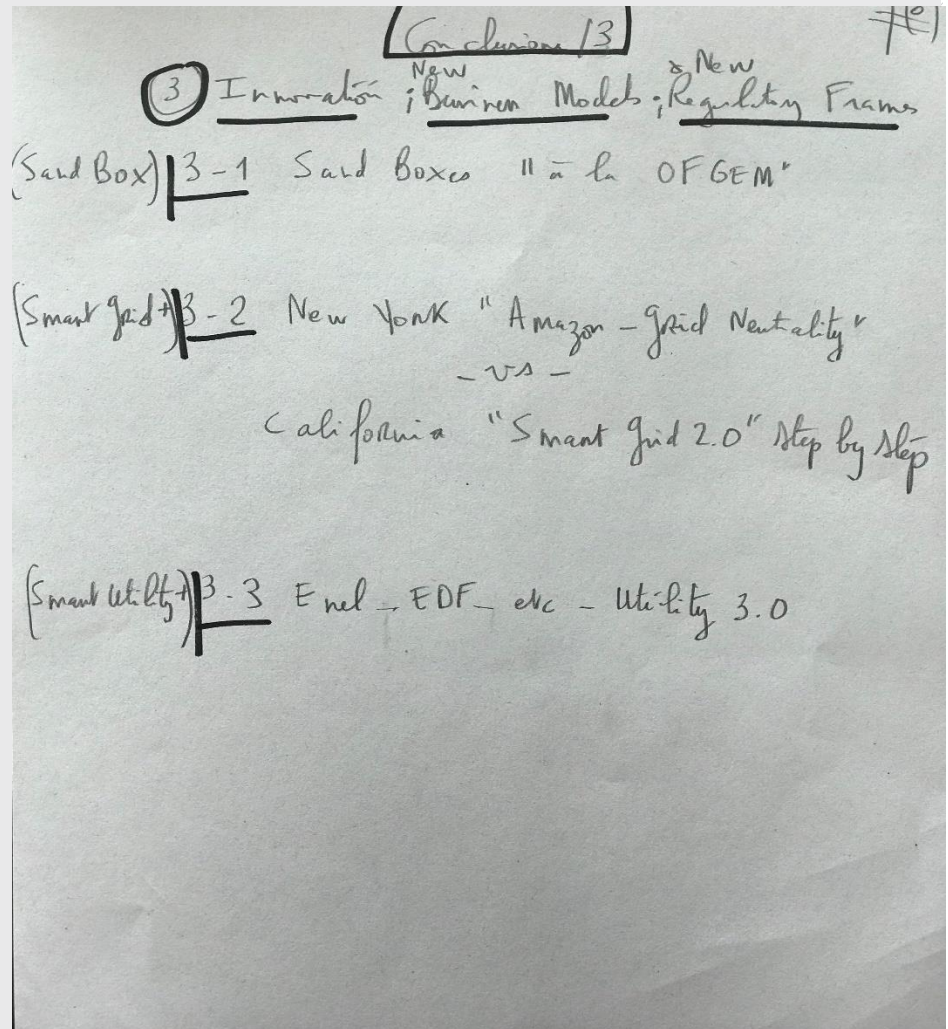 Conclusion /3
New & New
③ Innovation ; Business Models ; Regulatory Frames
(Sand Box) 3-1 Sand Boxes "à la OFGEM"
(Smart grid+) 3-2 New York "Amazon - grid Neutrality"
- vs -
California "Smart grid 2.0" step by step
(Smart Utility+) 3.3 Enel - EDF - etc - Utility 3.0